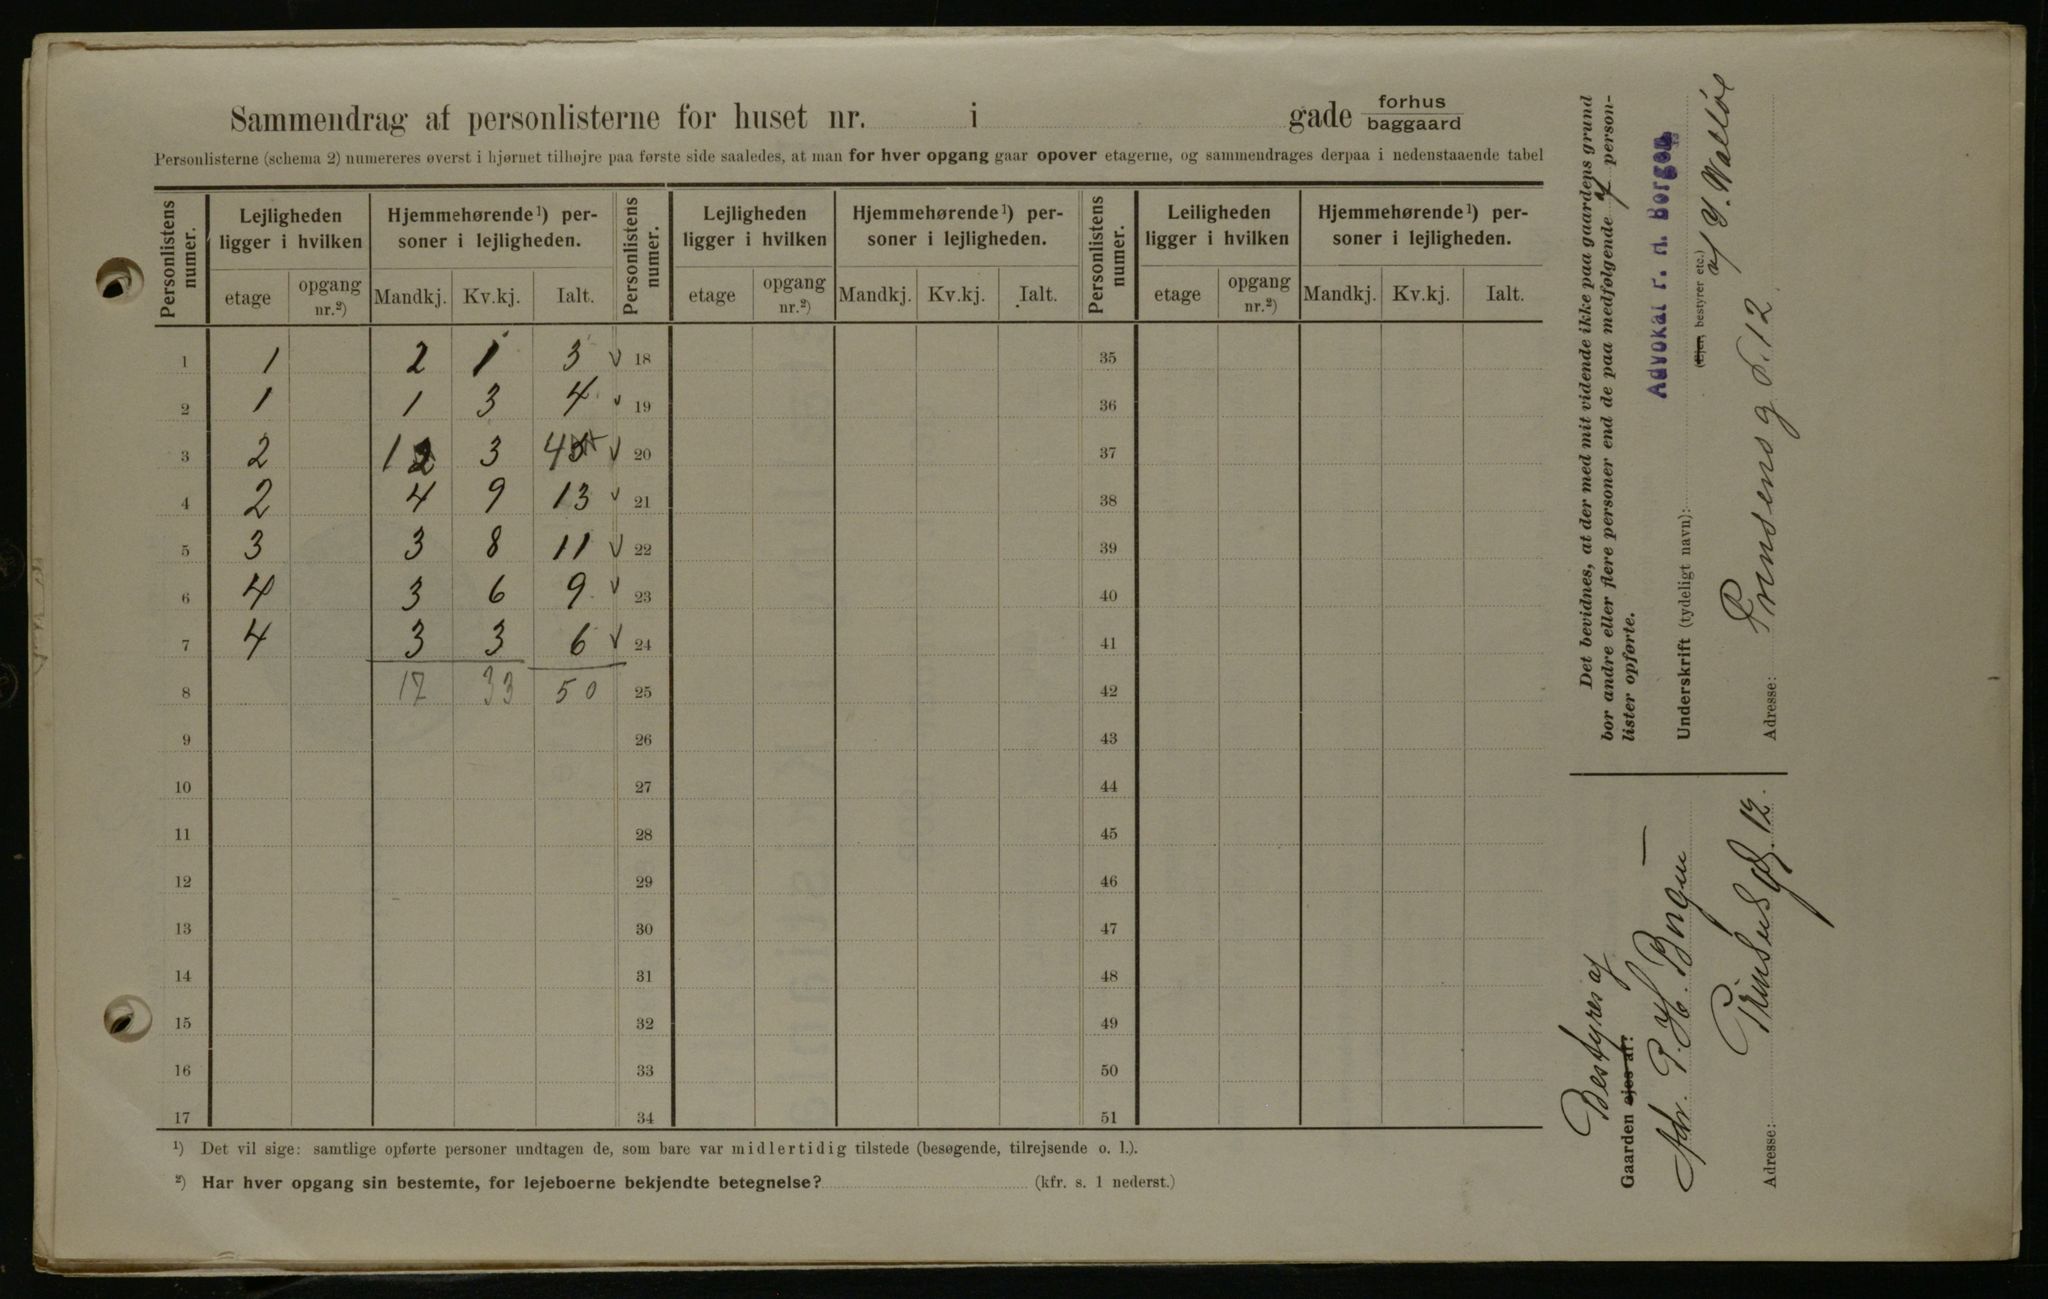 Sammendrag af personlisterne for huset nr. i gade forhus baggaard
Personlisterne (schema 2) numereres øverst i hjørnet tilhøjre paa første side saaledes, at man for hver opgang gaar opover etagerne, og sammendrages derpaa i nedenstaaende tabel
Personlistens numer. Lejligheden ligger i hvilken Hjemmehørende ¹) personer i lejligheden. Personlistens numer. Lejligheden ligger i hvilken Hjemmehørende ¹) personer i lejligheden. Personlistens numer. Leiligheden ligger i hvilken Hjemmehørende ¹) personer i lejligheden.
etage opgang nr.²) Mandkj. Kv.kj. Ialt. etage opgang nr.²) Mandkj. Kv.kj. Ialt. etage opgang nr.²) Mandkj. Kv.kj. Ialt.
1 1 2 1 3 √ 18 35
2 1 1 3 4 √ 19 36
3 2 1 2 3 4 5 √ 20 37
4 2 4 9 13 √ 21 38
5 3 3 8 11 √ 22 39
6 4 3 6 9 √ 23 40
7 4 3 3 6 √ 24 41
8 17 33 50 25 42
9 26 43
10 27 44
11 28 45
12 29 46
13 30 47
14 31 48
15 32 49
16 33 50
17 34 51
¹) Det vil sige: samtlige opførte personer undtagen de, som bare var midlertidig tilstede (besøgende, tilrejsende o. l.).
²) Har hver opgang sin bestemte, for lejeboerne bekjendte betegnelse? (kfr. s. 1 nederst.)
Det bevidnes, at der med mit vidende ikke paa gaardens grund
bor andre eller flere personer end de paa medfølgende 7 person-
lister opførte.
Advokat r. H. Borgen
Underskrift (tydeligt navn):
(Ejer, bestyrer etc.)
Adresse: Prinsens g. 12.
Bestyres af
Gaarden ejes af:
P. H. Borgen
Adresse: Prinsens gd. 12.